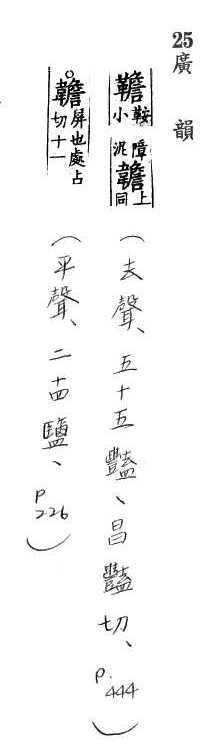 25 廣韻
䪜鞍小障泥韂上同(去聲、五十五豔、昌豔切、P.444)
○韂屏也處占切十一(平聲、二十四鹽、P226)